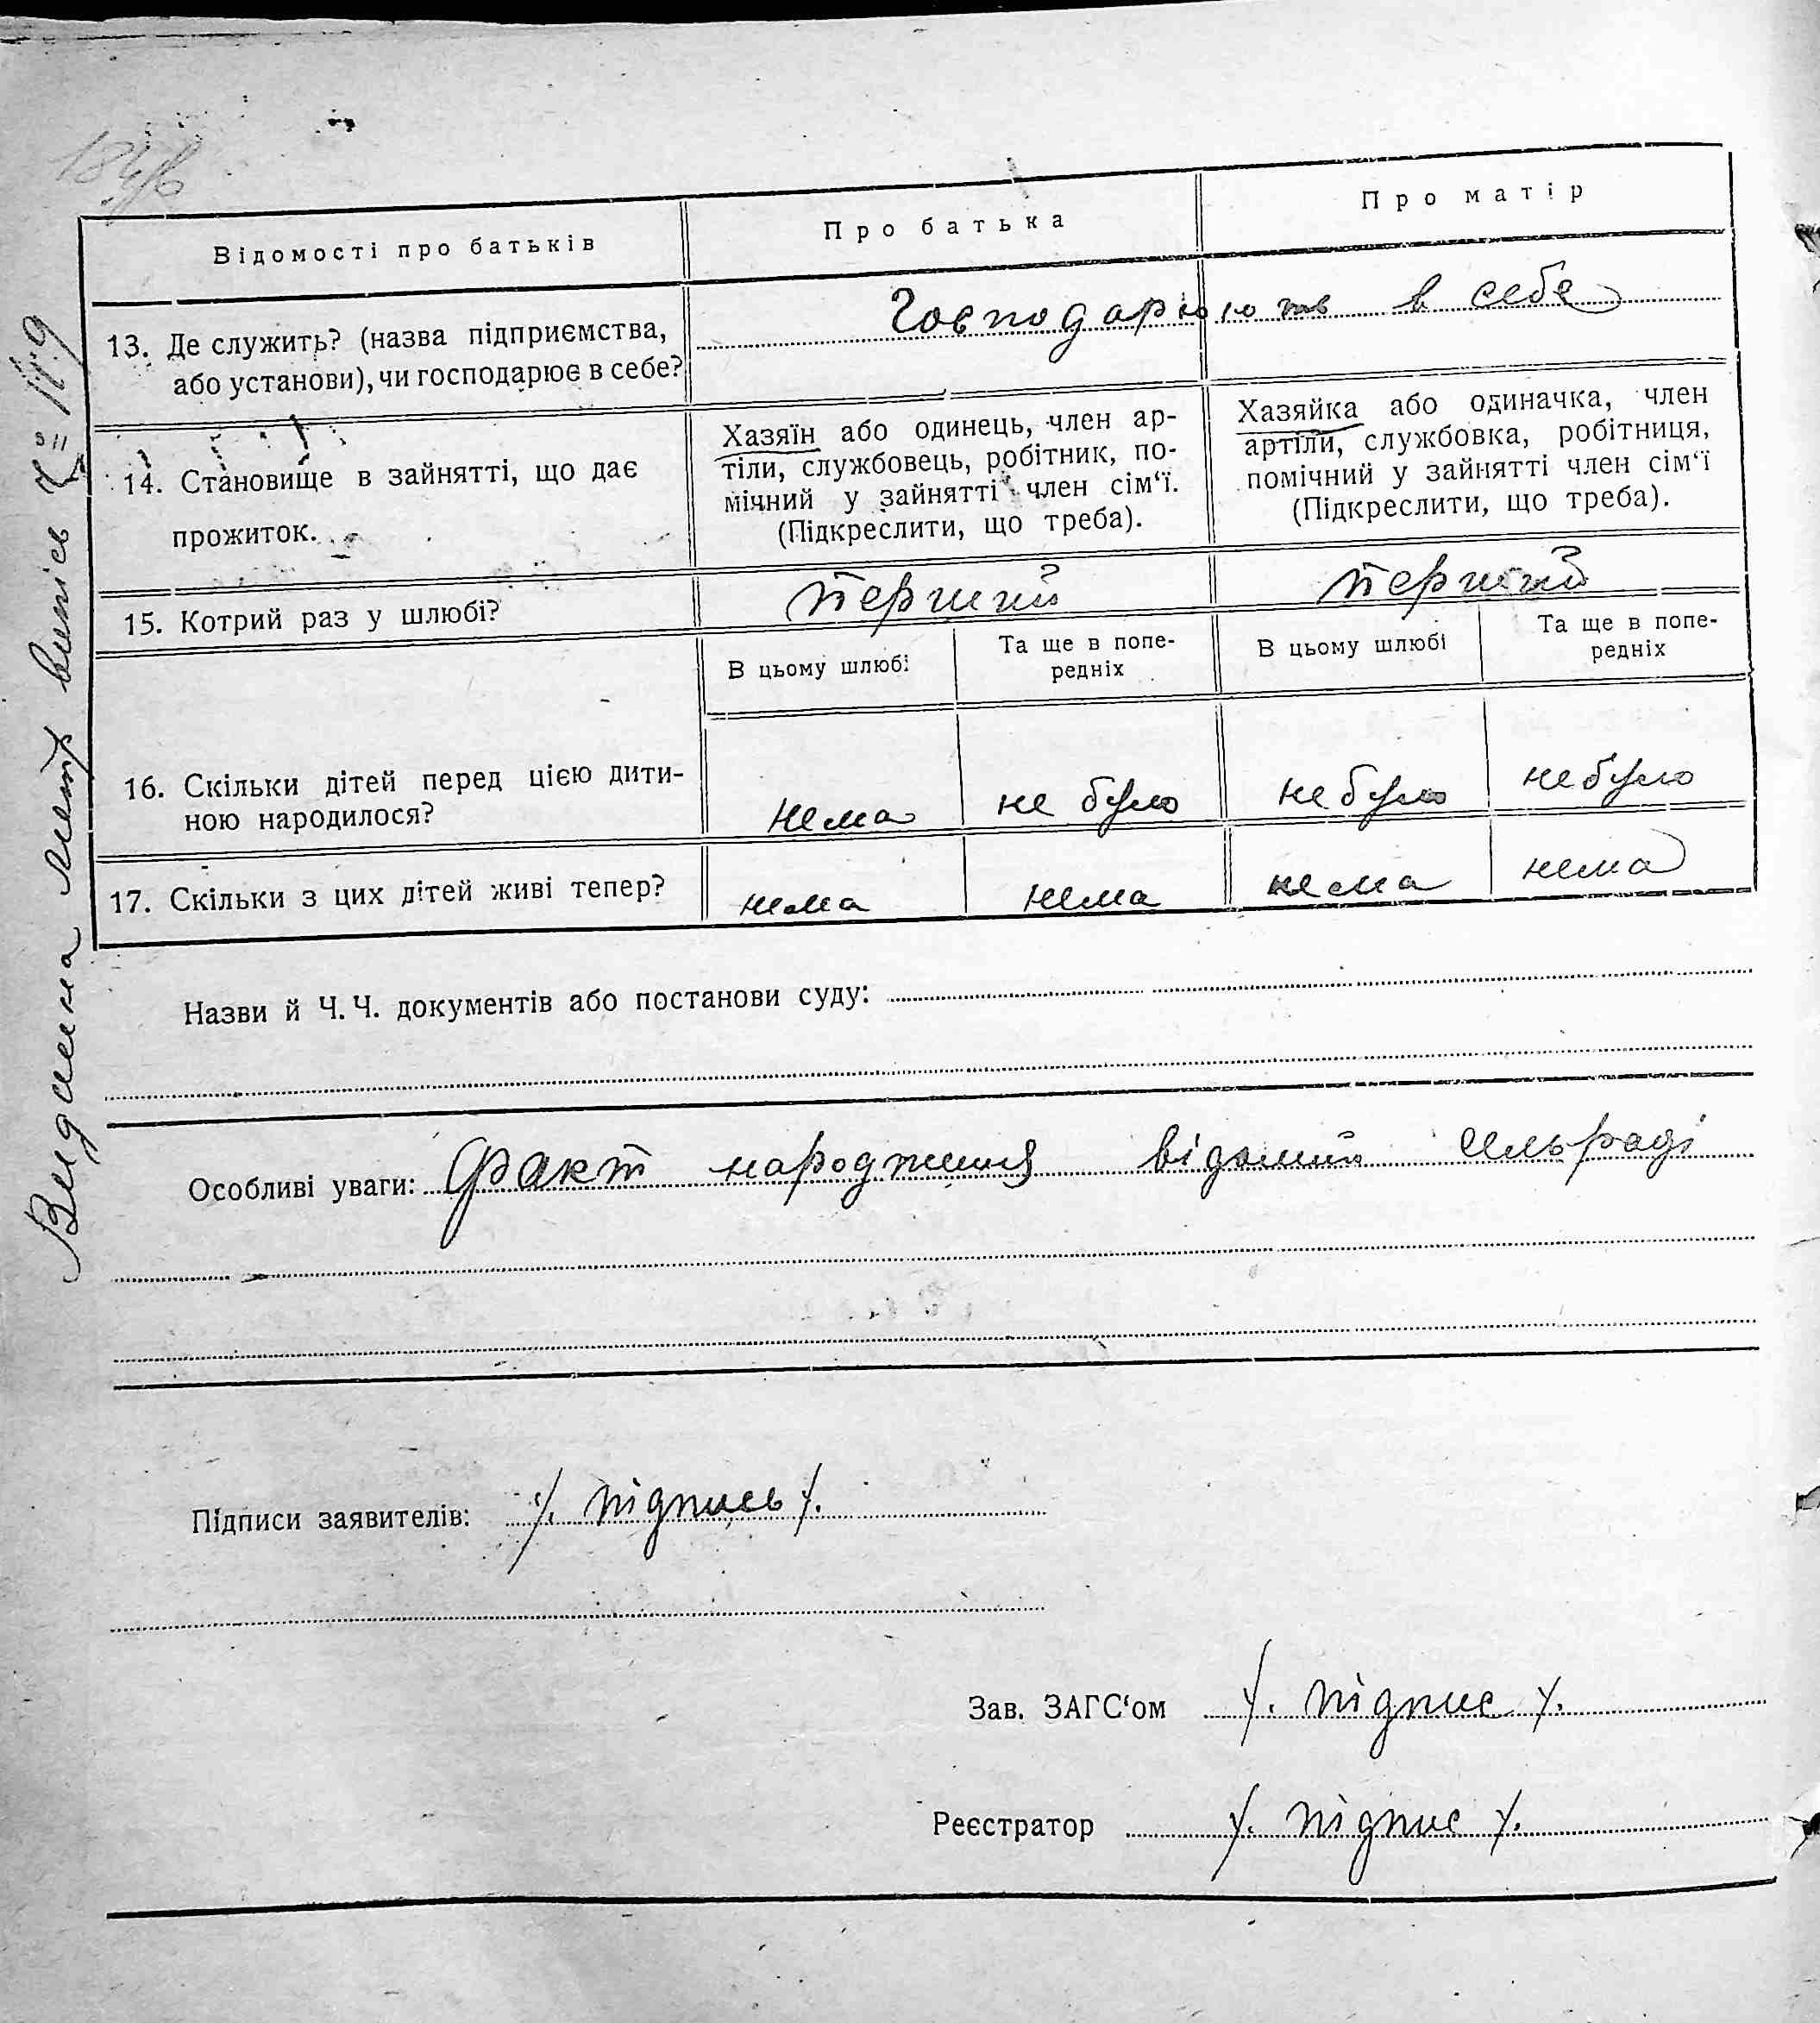 Відомості про батьків
Про батька
Про матір
13. Де служить? (назва підприємства,
або установи), чи господарює в себе?
Господарюють в себе
14. Становище в зайнятті, що дає
прожиток.
Хазяїн або одинець, член ар-
тіли, службовець, робітник, по-
мічний у зайнятті член сім‘ї.
(Підкреслити, що треба).
Хазяйка або одиначка, член
артіли, службовка, робітниця,
помічний у зайнятті член сім‘ї
(Підкреслити, що треба).
15. Котрий раз у шлюбі?
перший
перший
В цьому шлюбі
Та ще в попе-
редніх
В цьому шлюбі
Та ще в попе-
редніх
16. Скільки дітей перед цією дити-
ною народилося?
нема
не було
не було
не було
17. Скільки з цих дітей живі тепер?
нема
нема
нема
нема
Назви й Ч. Ч. документів або постанови суду:
Особливі уваги: Факт народження відомий сільраді
Підписи заявителів: /. підпись /.
Зав. ЗАГС‘ом /. підпис /.
Реєстратор /. підпис /.
Видана метр випись